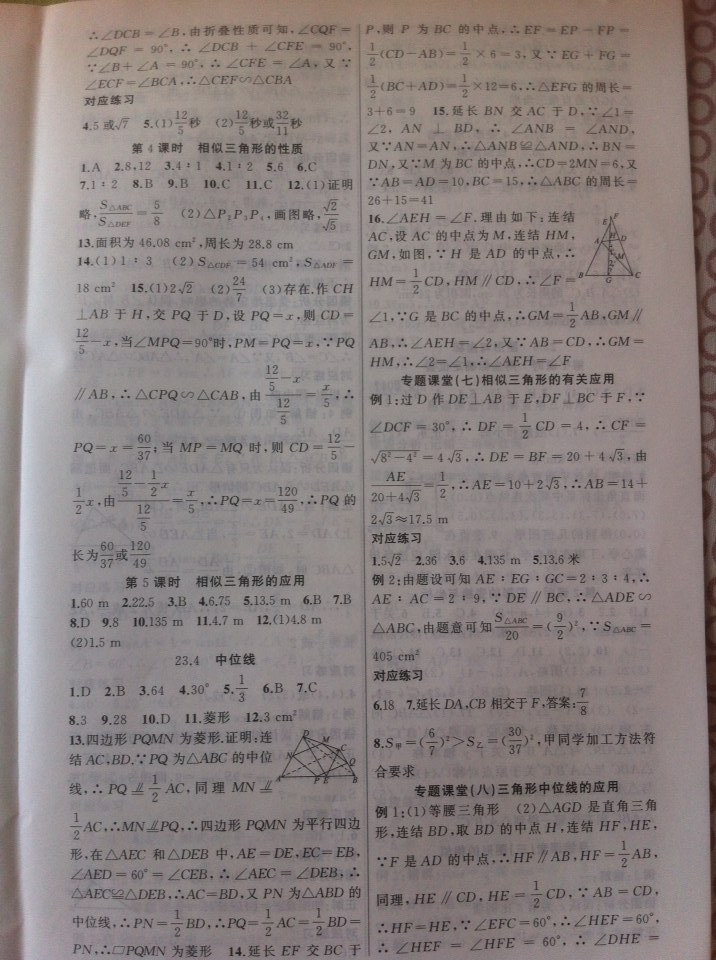 ∴∠DCB=∠B,由折叠性质可知,∠CQF=
∠DQF = 90°, ∴ ∠DCB + ∠CFE = 90°,
∵∠B+∠A = 90°, ∴ ∠CFE = ∠A, 又 ∵
∠ECF=∠BCA,∴△CEF∽△CBA
对应练习
4.5 或√7 5.(1)12/5秒 (2)12/5秒或32/11秒
第 4 课时 相似三角形的性质
1.A 2.8,12 3.4∶1 4.1∶2 5.6 6.C
7.1∶2 8.B 9.B 10.C 11.C 12.(1)证明
略,S△ABC/S△DEF=5/8 (2)△P₂P₅P₄,画图略,√2/√5
13.面积为 46.08 cm²,周长为 28.8 cm
14.(1)1∶3 (2)S△CDF = 54 cm², S△ADF =
18 cm² 15.(1)2√2 (2)24/7 (3)存在.作 CH
⊥AB 于 H,交 PQ 于 D,设 PQ=x,则 CD=
12/5−x,当∠MPQ=90°时,PM=PQ=x,∵PQ
∥AB,∴△CPQ∽△CAB,由(12/5−x)/(12/5)=x/5,∴
PQ=x=60/37;当 MP=MQ 时,则 CD=12/5−
1/2x,由(12/5−1/2x)/(12/5)=x/5,∴PQ=x=120/49,∴PQ 的
长为60/37或120/49
第 5 课时 相似三角形的应用
1.60 m 2.22.5 3.B 4.6.75 5.13.5 m 6.B 7.B
8.D 9.8 10.135 m 11.4.7 m 12.(1)4.8 m
(2)1.5 m
23.4 中位线
1.D 2.B 3.64 4.30° 5.1/3 6.B 7.C
8.3 9.28 10.D 11.菱形 12.3 cm²
13.四边形 PQMN 为菱形.证明:连
结 AC,BD.∵PQ 为△ABC 的中位
线,∴PQ ⫽ 1/2 AC,同理 MN ⫽
1/2AC,∴MN⫽PQ,∴四边形 PQMN 为平行四边
形,在△AEC 和△DEB 中,AE=DE,EC=EB,
∠AED = 60° = ∠CEB, ∴ ∠AEC = ∠DEB, ∴
△AEC≌△DEB,∴AC=BD,又 PN 为△ABD 的
中位线,∴PN=1/2BD,∴PQ=1/2AC=1/2BD=
PN,∴□PQMN 为菱形 14.延长 EF 交 BC 于
P,则 P 为 BC 的中点,∴EF=EP−FP=
1/2(CD−AB)=1/2×6=3,又∵EG+FG=
1/2(BC+AD)=1/2×12=6,∴△EFG 的周长=
3+6=9 15.延长 BN 交 AC 于 D,∵∠1=
∠2, AN ⊥ BD, ∴ ∠ANB = ∠AND,
又∵AN=AN,∴△ANB≌△AND,∴BN=
DN,又∵M 为 BC 的中点,∴CD=2MN=6,又
∵AB=AD=10,BC=15,∴△ABC 的周长=
26+15=41
16.∠AEH=∠F.理由如下:连结
AC,设 AC 的中点为 M,连结 HM,
GM,如图,∵H 是 AD 的中点,∴
HM=1/2CD,HM∥CD,∴∠F=
∠1,∵G 是 BC 的中点,∴GM=1/2AB,GM∥
AB,∴∠AEH=∠2,又∵AB=CD,∴GM=
HM,∴∠2=∠1,∴∠AEH=∠F
专题课堂(七)相似三角形的有关应用
例 1:过 D 作 DE⊥AB 于 E,DF⊥BC 于 F,∵
∠DCF = 30°, ∴ DF = 1/2 CD = 4, ∴ CF =
√(8²−4²) = 4√3, ∴ DE = BF = 20 + 4√3, 由
AE/(20+4√3)=1/2,∴AE=10+2√3,∴AB=14+
2√3≈17.5 m
对应练习
1.5√2 2.36 3.6 4.135 m 5.13.6 米
例 2:由题设可知 AE∶EG∶GC=2∶3∶4,∴
AE∶AC = 2∶9, ∵ DE∥BC, ∴ △ADE∽
△ABC,由题意可知S△ABC/20=(9/2)²,∵S△ABC=
405 cm²
对应练习
6.18 7.延长 DA,CB 相交于 F,答案:7/8
8.S甲=(6/7)²>S乙=(30/37)²,甲同学加工方法符
合要求
专题课堂(八)三角形中位线的应用
例 1:(1)等腰三角形 (2)△AGD 是直角三角
形,连结 BD,取 BD 的中点 H,连结 HF,HE,
∵F 是 AD 的中点,∴HF∥AB,HF=1/2AB,
同理,HE∥CD,HE=1/2CD,∵AB=CD,
∴HF=HE,∵∠EFC=60°,∴∠HEF=60°,
∴ ∠HEF = ∠HFE = 60°, ∴ ∠DHE =